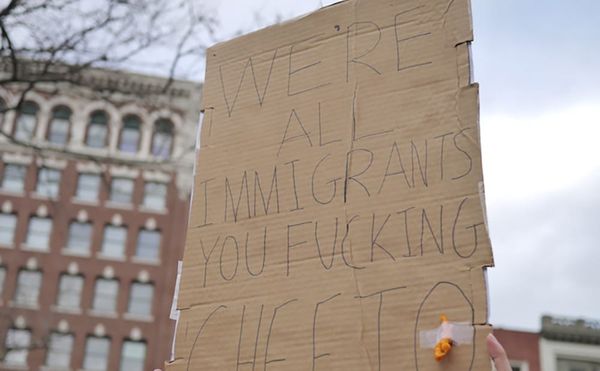 WE'RE
ALL
IMMIGRANTS
YOU FUCKING
CHEETO